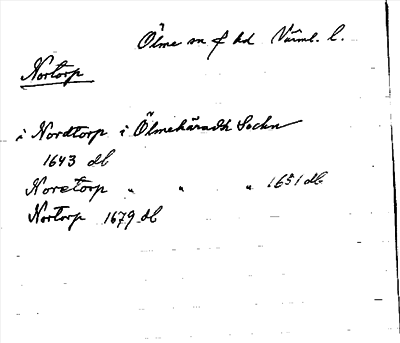 Ölme sn f hd Värml. l.
Nortorp
i Nordtorp i Ölmehäradh Sockn
1643 db
Noretorp " " " 1651 db
Nortorp 1679 db